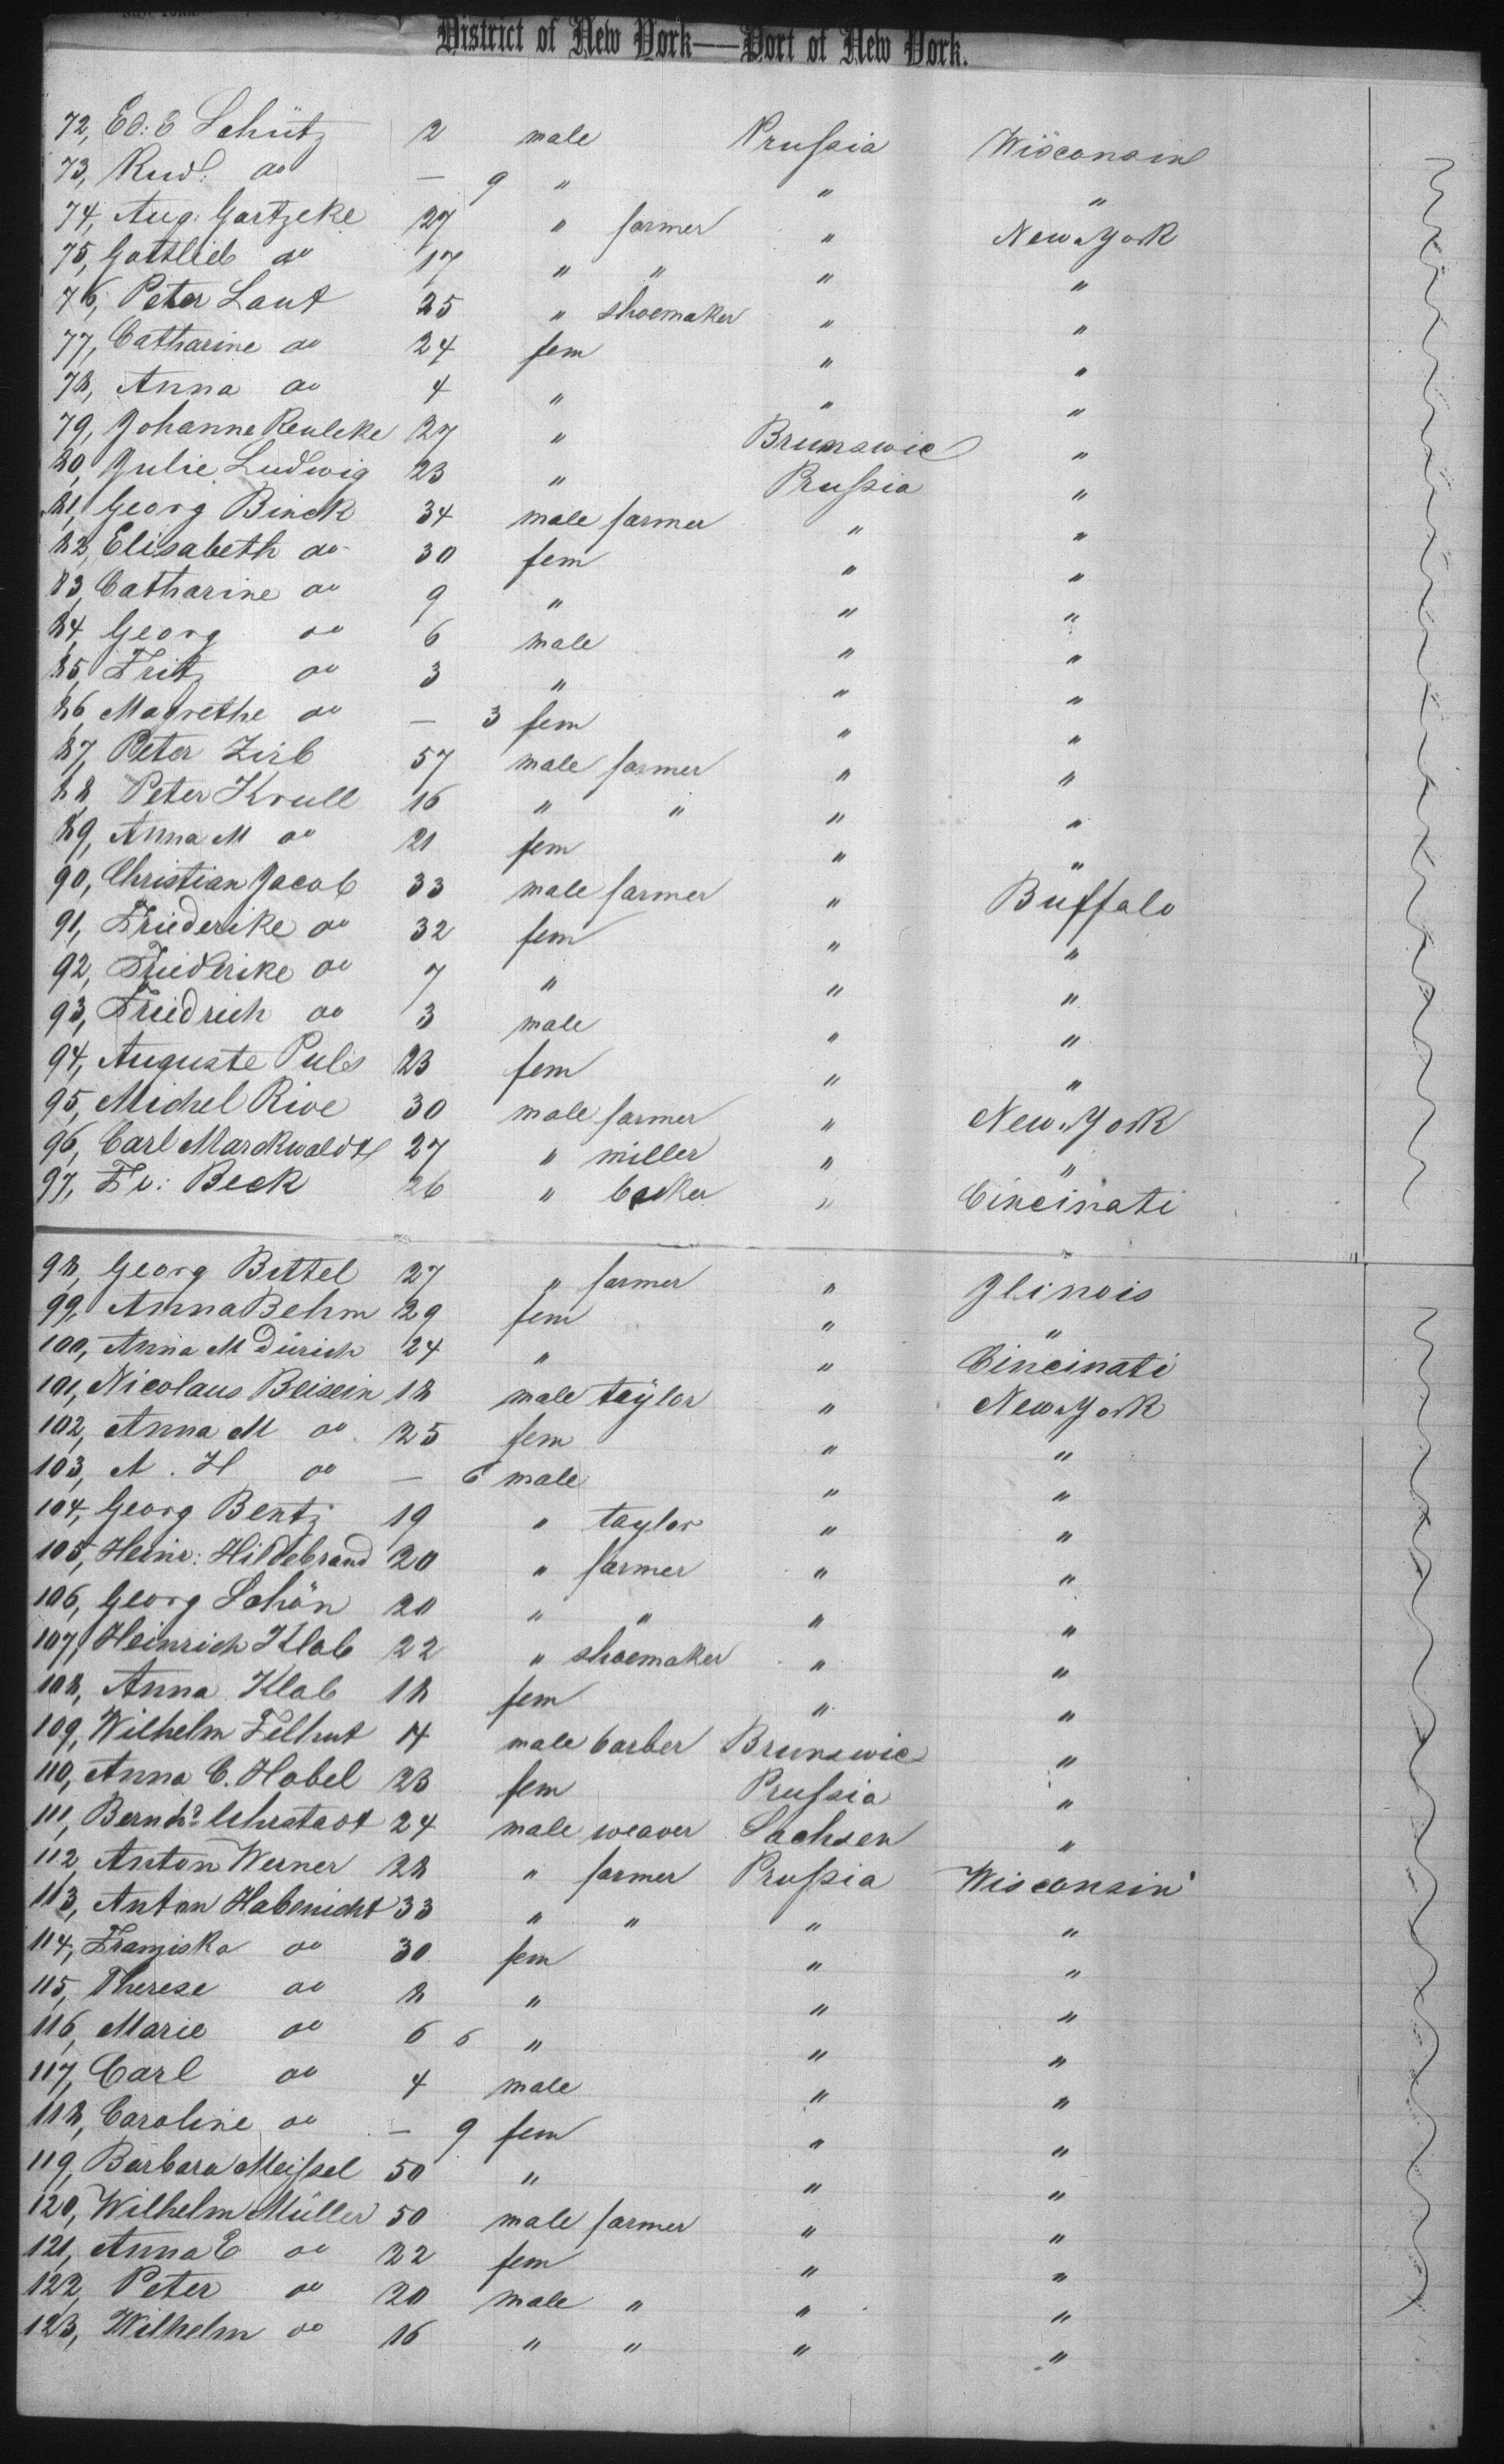 District of New York——Port of New York.
72, Ed: E Schütz 2 male Prussia Wisconsin
73, Rud: do — 9 " " "
74, Aug: Gartzeke 27 " farmer " New York
75, Gottlieb do 17 " " " "
76, Peter Laut 25 " shoemaker " "
77, Catharine do 24 fem " "
78, Anna do 4 " " "
79, Johanne Reuleke 27 " Brunswic "
80, Julie Ludwig 23 " Prussia "
81, Georg Binck 34 male farmer " "
82, Elisabeth do 30 fem " "
83, Catharine do 9 " " "
84, Georg do 6 male " "
85, Fritz do 3 " " "
86, Magrethe do — 3 fem " "
87, Peter Zirb 57 male farmer " "
88, Peter Krull 16 " " " "
89, Anna M do 21 fem " "
90, Christian Jacob 33 male farmer " Buffalo
91, Friederike do 32 fem " "
92, Friederike do 7 " " "
93, Friedrich do 3 male " "
94, Auguste Puls 23 fem " "
95, Michel Rive 30 male farmer " New York
96, Carl Marckwaldt 27 " miller " "
97, Fr: Beck 26 " backer " Cincinati
98, Georg Bittel 27 " farmer " Ilinois
99, Anna Behm 29 fem " "
100, Anna M Dürich 24 " " Cincinati
101, Nicolaus Beisein 18 male taylor " New York
102, Anna M do 25 fem " "
103, A. H do — 6 male " "
104, Georg Bentz 19 " taylor " "
105, Heinr: Hildebrand 20 " farmer " "
106, Georg Schön 20 " " " "
107, Heinrich Klab 22 " shoemaker " "
108, Anna Klab 18 fem " "
109, Wilhelm Felhut 14 male barber Brunswic "
110, Anna C. Habel 23 fem Prussia "
111, Bernhd 24 male weaver Sachsen "
112, Anton Werner 28 " farmer Prussia Wisconsin
113, Anton Habenicht 33 " " " "
114, Franziska do 30 fem " "
115, Therese do 8 " " "
116, Marie do 6 6 " " "
117, Carl do 4 male " "
118, Caroline do — 9 fem " "
119, Barbara Meissel 50 " " "
120, Wilhelm Müller 50 male farmer " "
121, Anna E do 22 fem " "
122, Peter do 20 male " " "
123, Wilhelm do 16 " " " "